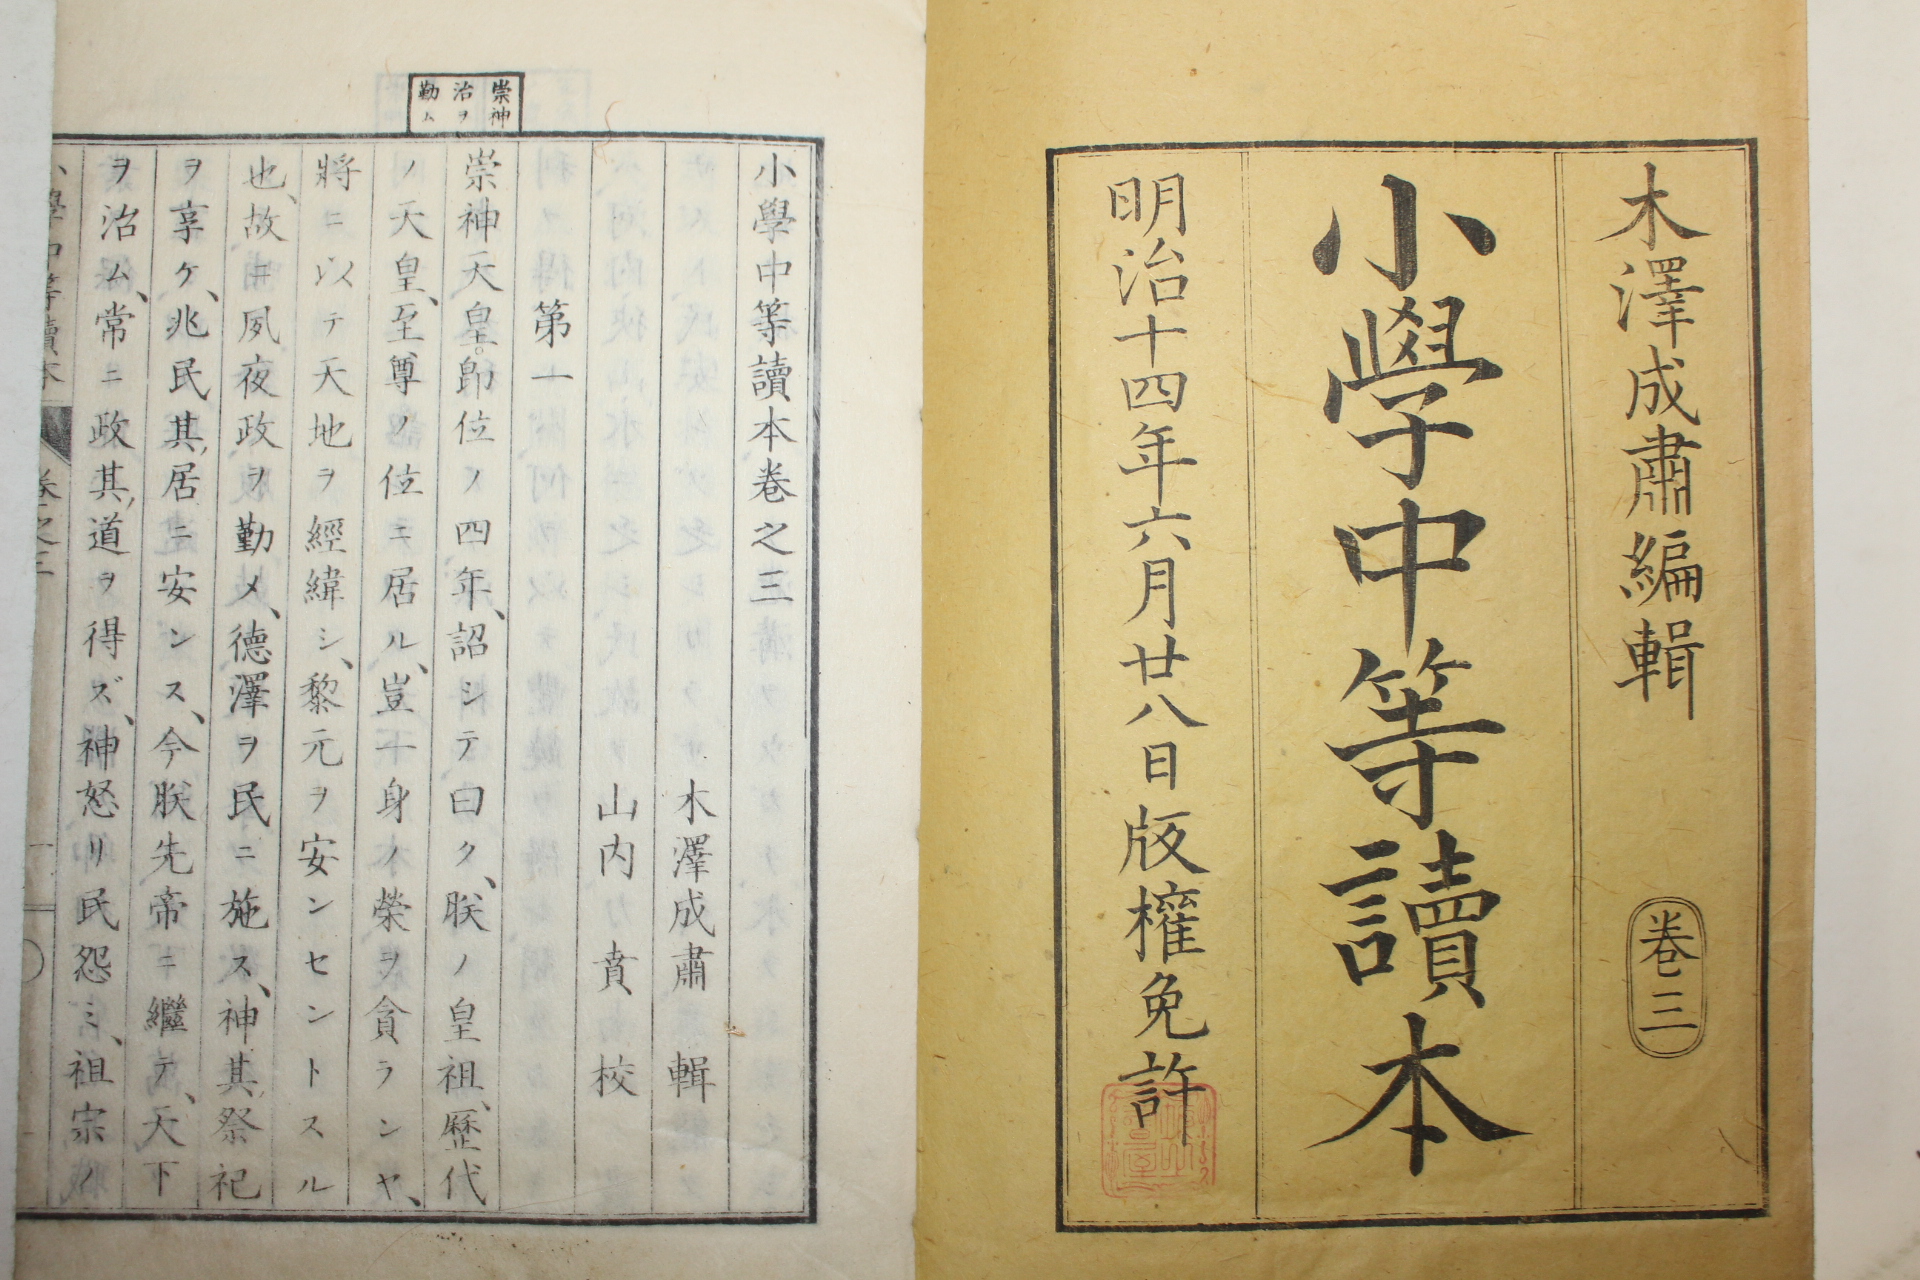 木澤成肅編輯
卷三
小學中等讀本
明治十四年六月廿八日版權免許
崇神
治ヲ
勤ム
小學中等讀本卷之三
木澤成肅 輯
山内力賁 校
第一
崇神天皇。即位ノ四年、詔シテ曰ク、朕ノ皇祖、歷代
ノ天皇、至尊ノ位ニ居ル、豈一身ノ榮ヲ貪ランヤ、
將ニ以テ天地ヲ經緯シ、黎元ヲ安ンセントスル
也、故ニ夙夜政ヲ勤メ、德澤ヲ民ニ施ス、神其祭祀
ヲ享ケ、兆民其居ニ安ンス、今朕先帝ニ繼テ、天下
ヲ治ム、常ニ政其道ヲ得ズ、神怒リ民怨ミ、祖宗ノ